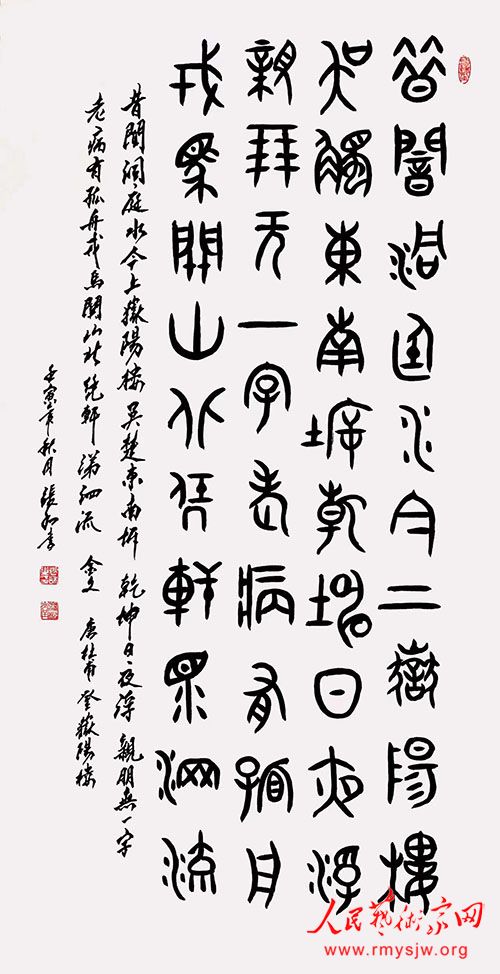 昔聞洞庭水今上嶽陽樓
吳楚東南坼乾坤日夜浮
親朋无一字老病有孤舟
戎馬關山北凭軒涕泗流
昔聞洞庭水今上嶽陽楼吳楚東南坼乾坤日夜浮親朋無一字
老病有孤舟戎馬關山北凭軒涕泗流 金文 唐杜甫登嶽陽楼
壬寅年秋月張
人民藝術家网
www.rmysjw.org